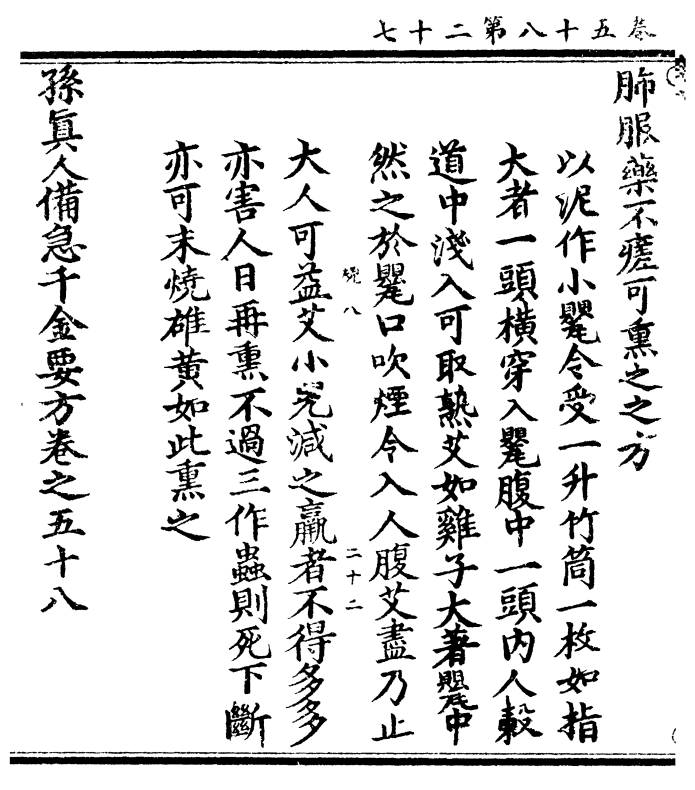 卷五十八第二十七
肺服藥不瘥可熏之之方
以泥作小甖令受一升竹筒一枚如指
大者一頭橫穿入甖腹中一頭內人穀
道中淺入可取熟艾如雞子大著甖中
然之於甖口吹煙令入人腹艾盡乃止
大人可益艾小兒減之羸者不得多多
亦害人日再熏不過三作蟲則死下斷
亦可末燒雄黃如此熏之
孫眞人備急千金要方卷之五十八
二十二